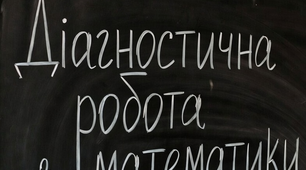 Діагностична
робота
математики